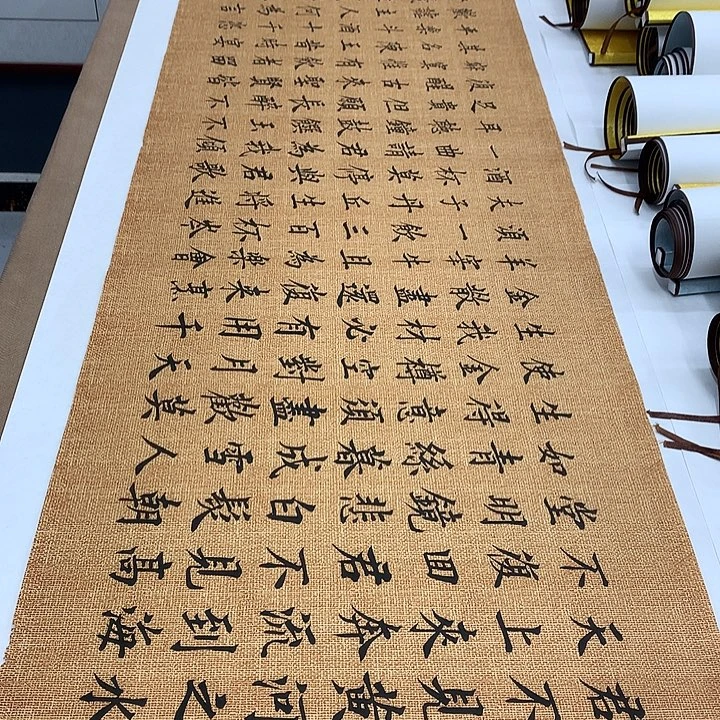 君不見黃河之水
天上來奔流到海
不復回君不見高
堂明鏡悲白髮朝
如青絲暮成雪人
生得意須盡歡莫
使金樽空對月天
生我材必有用千
金散盡還復來烹
羊宰牛且為樂會
須一飲三百杯岑
夫子丹丘生將進
酒杯莫停與君歌
一曲請君為我傾
耳鐘鼓饌玉不
足貴但願長醉不
復醒古來聖賢皆
寂寞有飲者留
其名陳王昔時宴